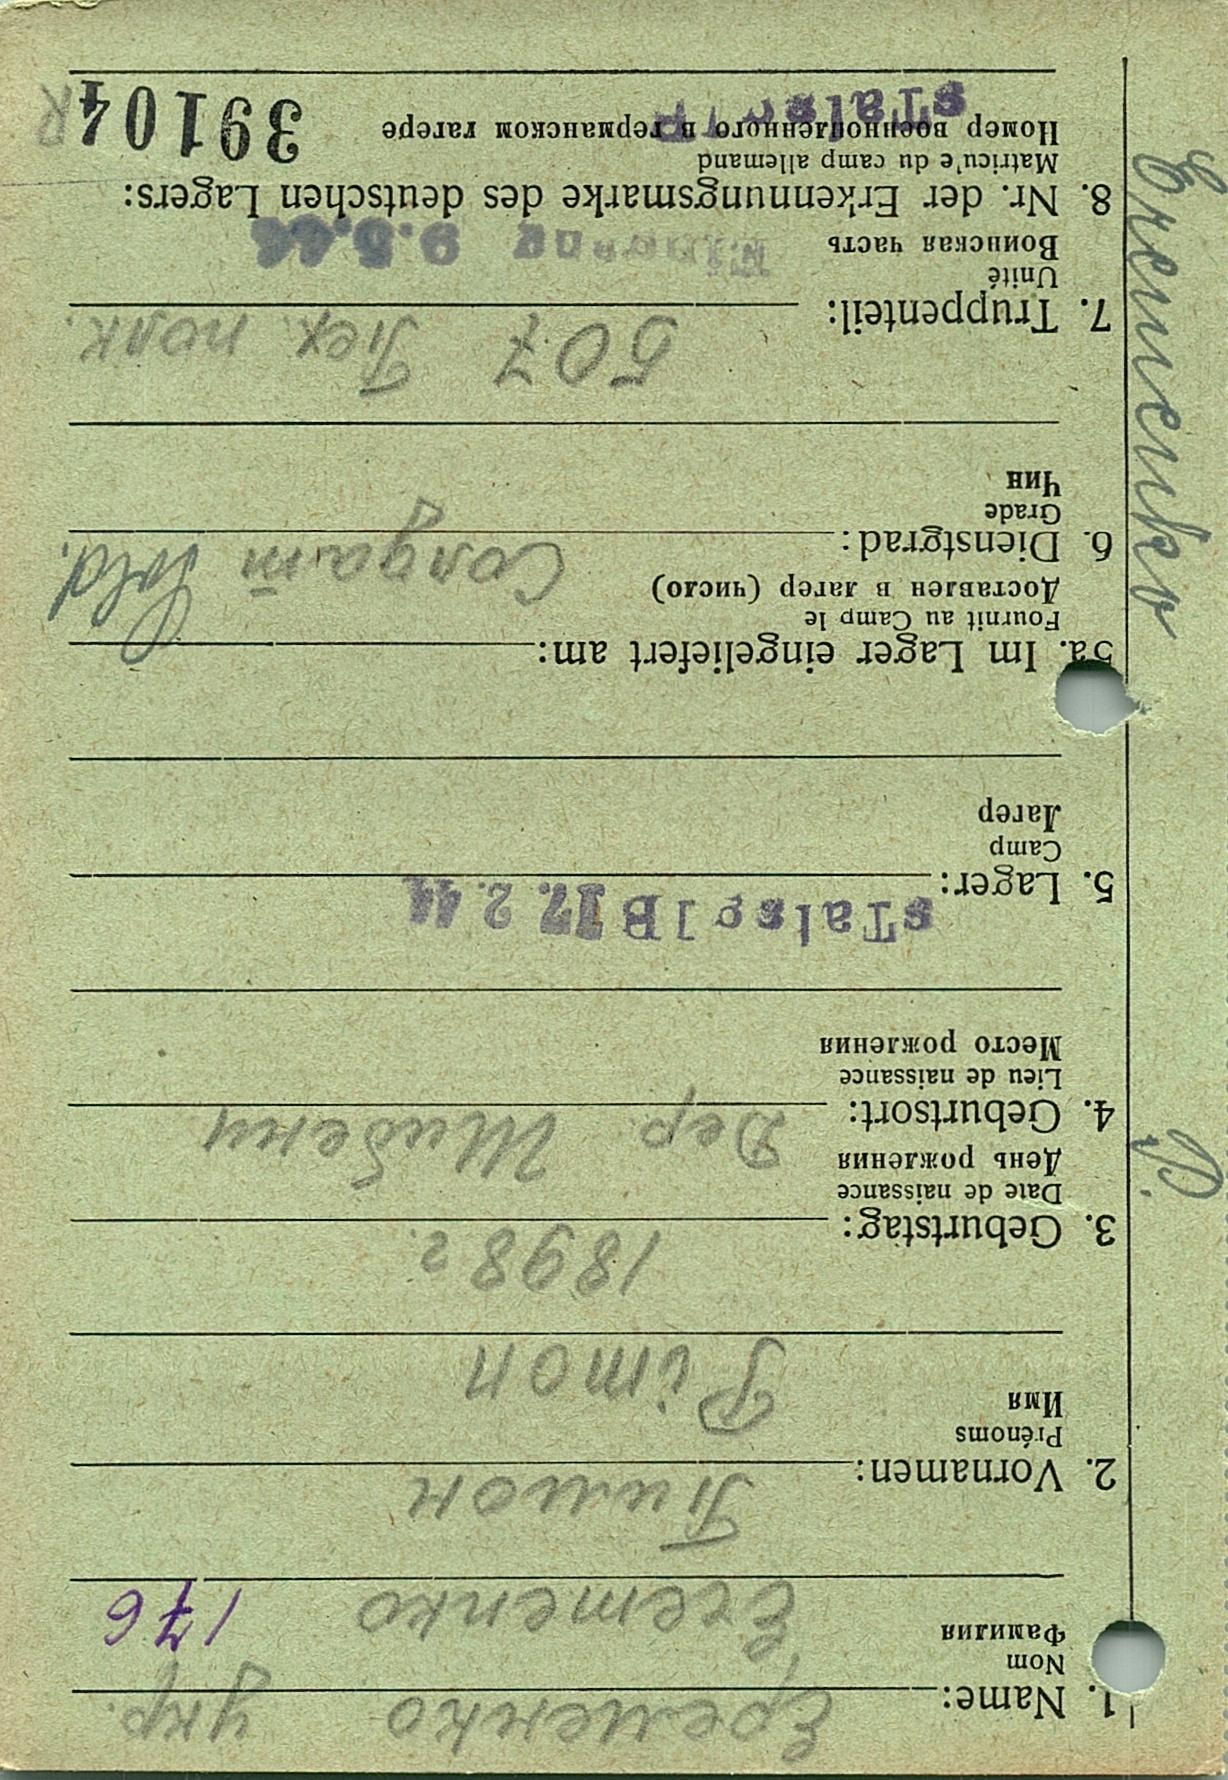 Еременко укр.
1. Name:
Nom
Фамилия
Eremenko 176
Тимон
2. Vornamen:
Prénoms
Имя
Timon
1898 г.
3. Geburtstag:
Date de naissance
День рождения
Дер.
4. Geburtsort:
Lieu de naissance
Место рождения
sTalag I B 17. 2. 44
5. Lager:
Camp
Лагер
5a. Im Lager eingeliefert am:
Fournit au Camp le
Доставлен в лагер (число)
Солдат Sold.
6. Dienstgrad:
Grade
Чин
507 Пех. полк.
7. Truppenteil:
Unité
Воинская часть
Eingang 9.5.44
8. Nr. der Erkennungsmarke des deutschen Lagers:
Matricu'e du camp allemand
Номер военнопленного в германском лагере
39104
R
sTalag I B
Eremenko